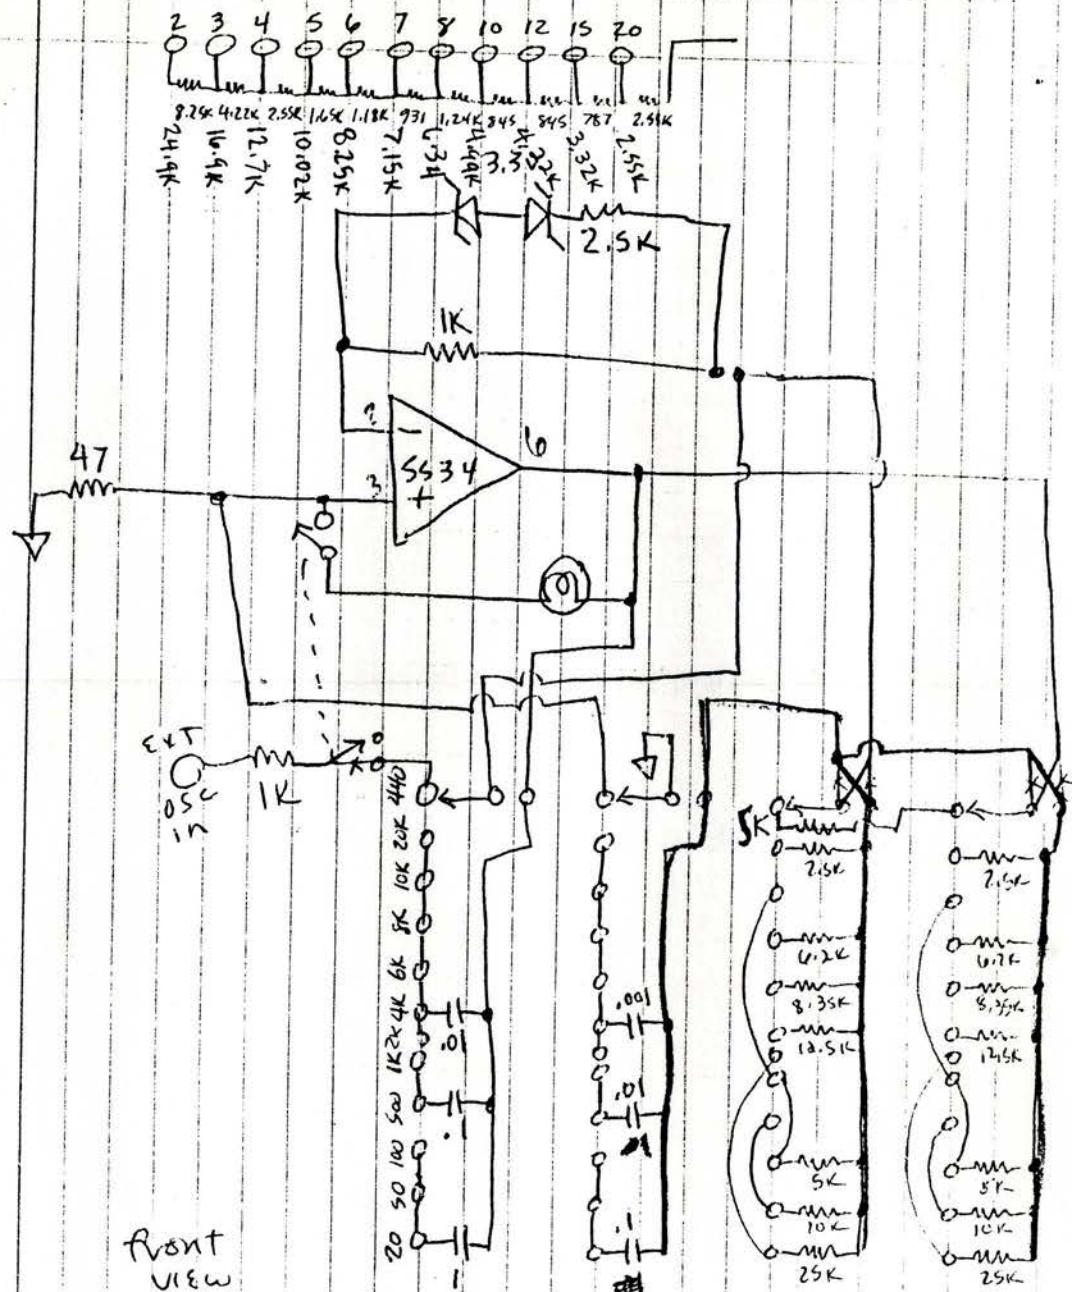 2 3 4 5 6 7 8 10 12 15 20
8.25K 4.22K 2.55K 1.65K 1.18K 931 1.24K 845 845 787 2.55K
24.9K 16.9K 12.7K 10.02K 8.25K 7.15K 6.34 4.99K 3.32K 2.55K
2.5K
1K
2
6
47
5534
3
-
+
EXT
OSC
in
1K
440
20K
10K
8K
6K
4K
2K
1K
500
100
50
20
.01
.1
1
.001
.01
.1
5K
2.5K
6.2K
8.35K
12.5K
5K
10K
25K
2.5K
6.2K
8.35K
12.5K
5K
10K
25K
front
VIEW